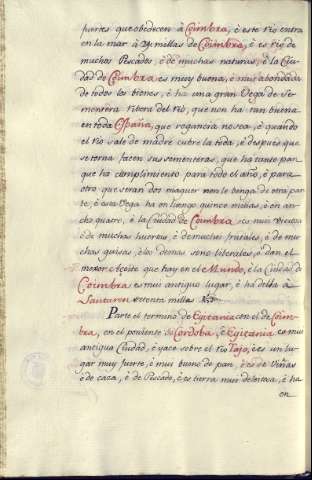 fuertes que obedecen à Coimbra, è este rio entra
en la mar à 24 millas de Coimbra, è es rio de
muchos Pescados, è de muchas naturas, è la Ciu-
dad de Coimbra es muy buena, è mui abondada
de todos los bienes, è ha una gran Vega de Se-
mentera ribera del rio, que non ha tan buena
en toda España, que regancia no sea, è quando
el rio sale de madre cubre la toda, è despues que
se torna facen sus sementeras, que ha tanto pan
que ha cumplimiento para todo el año, è para
otro, que seran dos maguer non le venga de otra par
te, è esta Vega ha en luengo quince millas, è en an-
cho quatro, è la Ciudad de Coimbra
è de muchas huertas, è de muchos frutales, è de mu-
chas guisas, è los demas son liberales, è dan el
mexor Aceite que hay en el Mundo, è la Ciudad de
Coimbra es mui antiguo lugar, è ha della à
Santaren setenta millas
Parte el termino de Egitania con el de Coim-
bra, en el poniente de Cordoba, è Egitania es mui
antigua Ciudad, è yace sobre el rio Tajo, è es un lu-
gar muy fuerte, è mui bueno de pan, è es de Viñas
è de caza, è de Pescado, è es tierra mui deleitosa, è ha
en